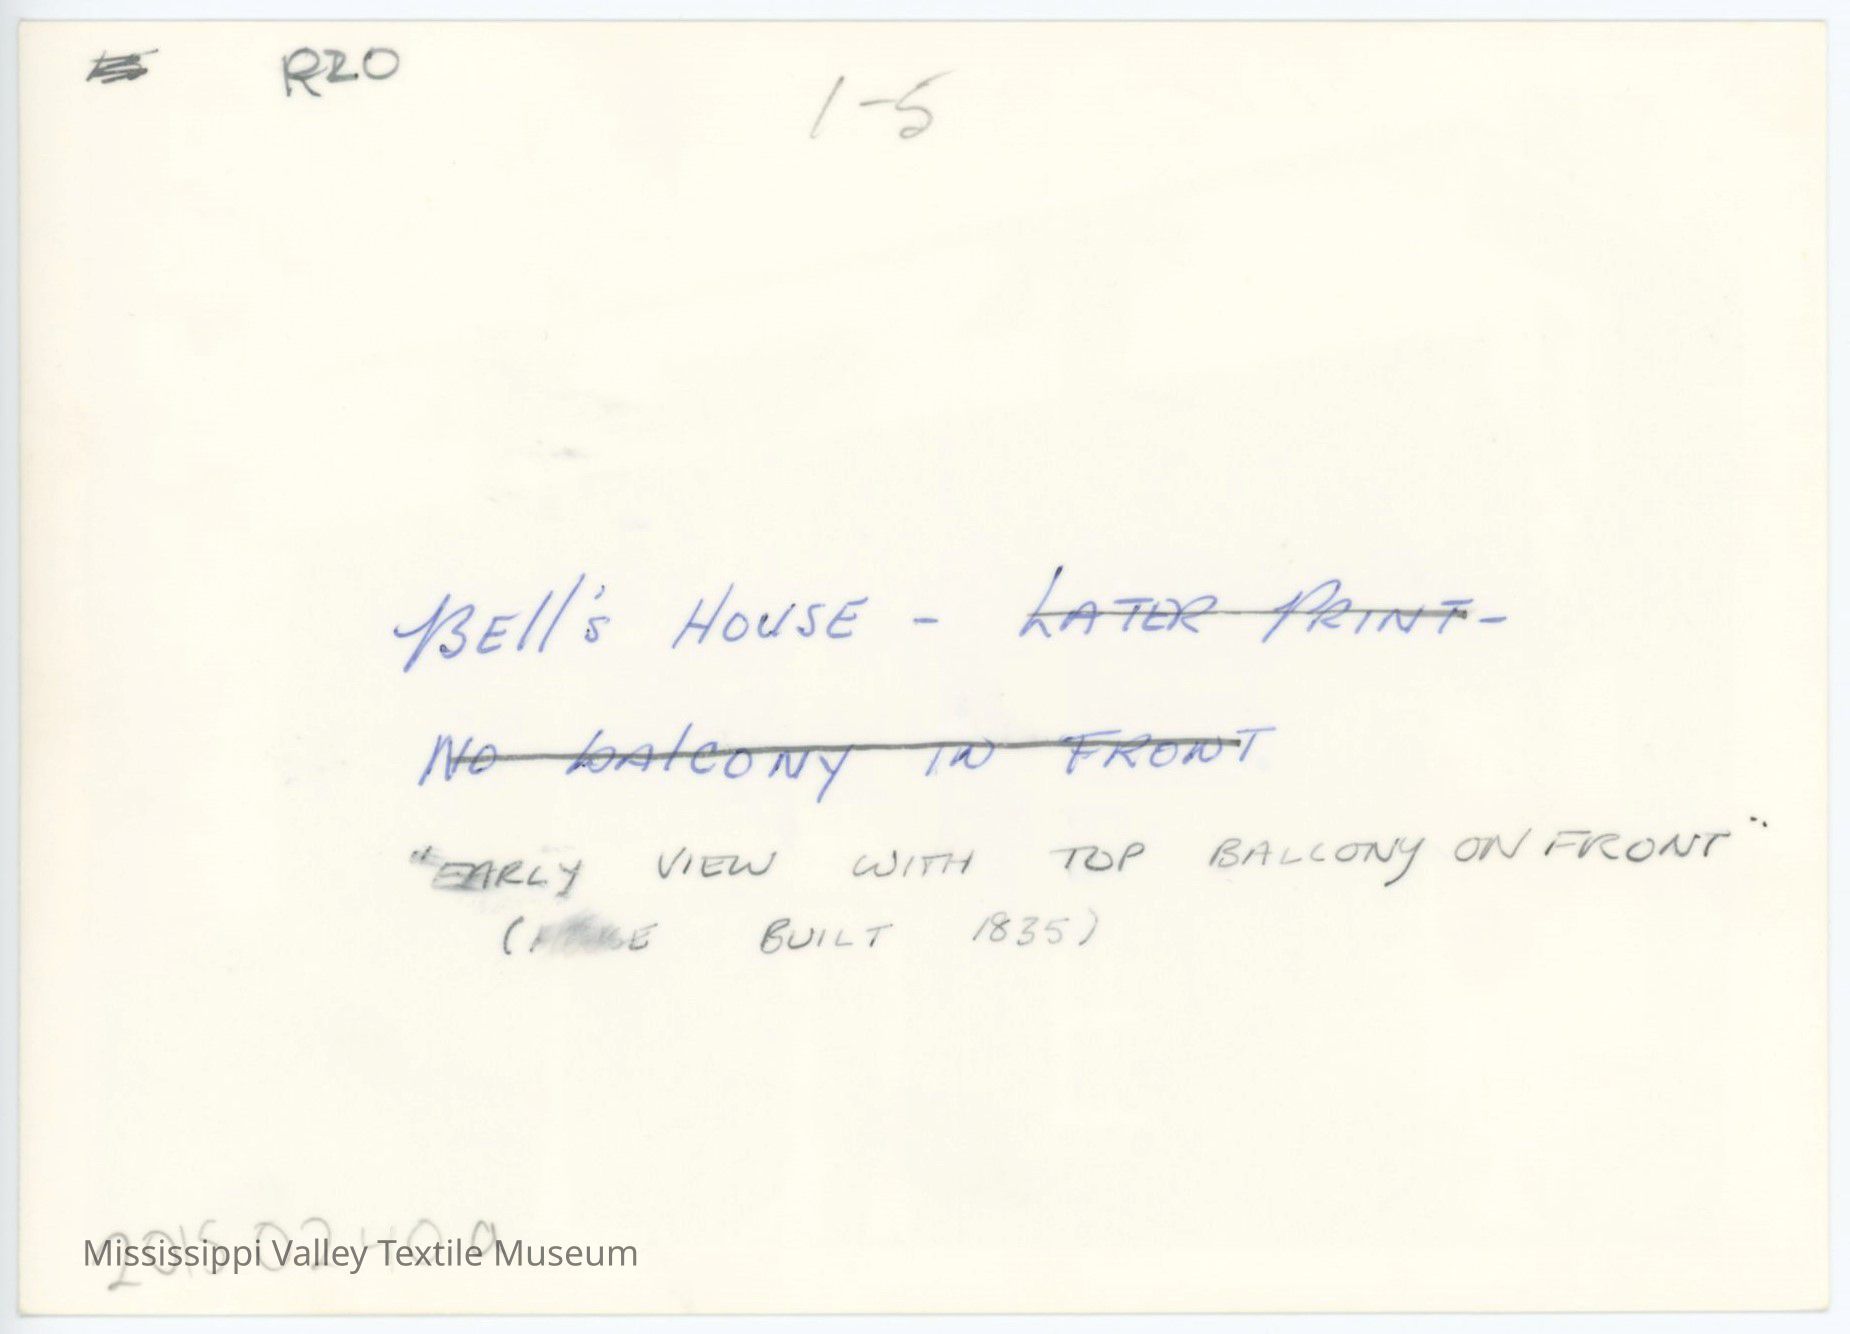 R20
1-5
BEll's HOUSE - LATER PRINT-
NO bAlCONY IN FRONT
"EARLY VIEW WITH TOP BALCONY ON FRONT"
(HOUSE BUILT 1835)
Mississippi Valley Textile Museum